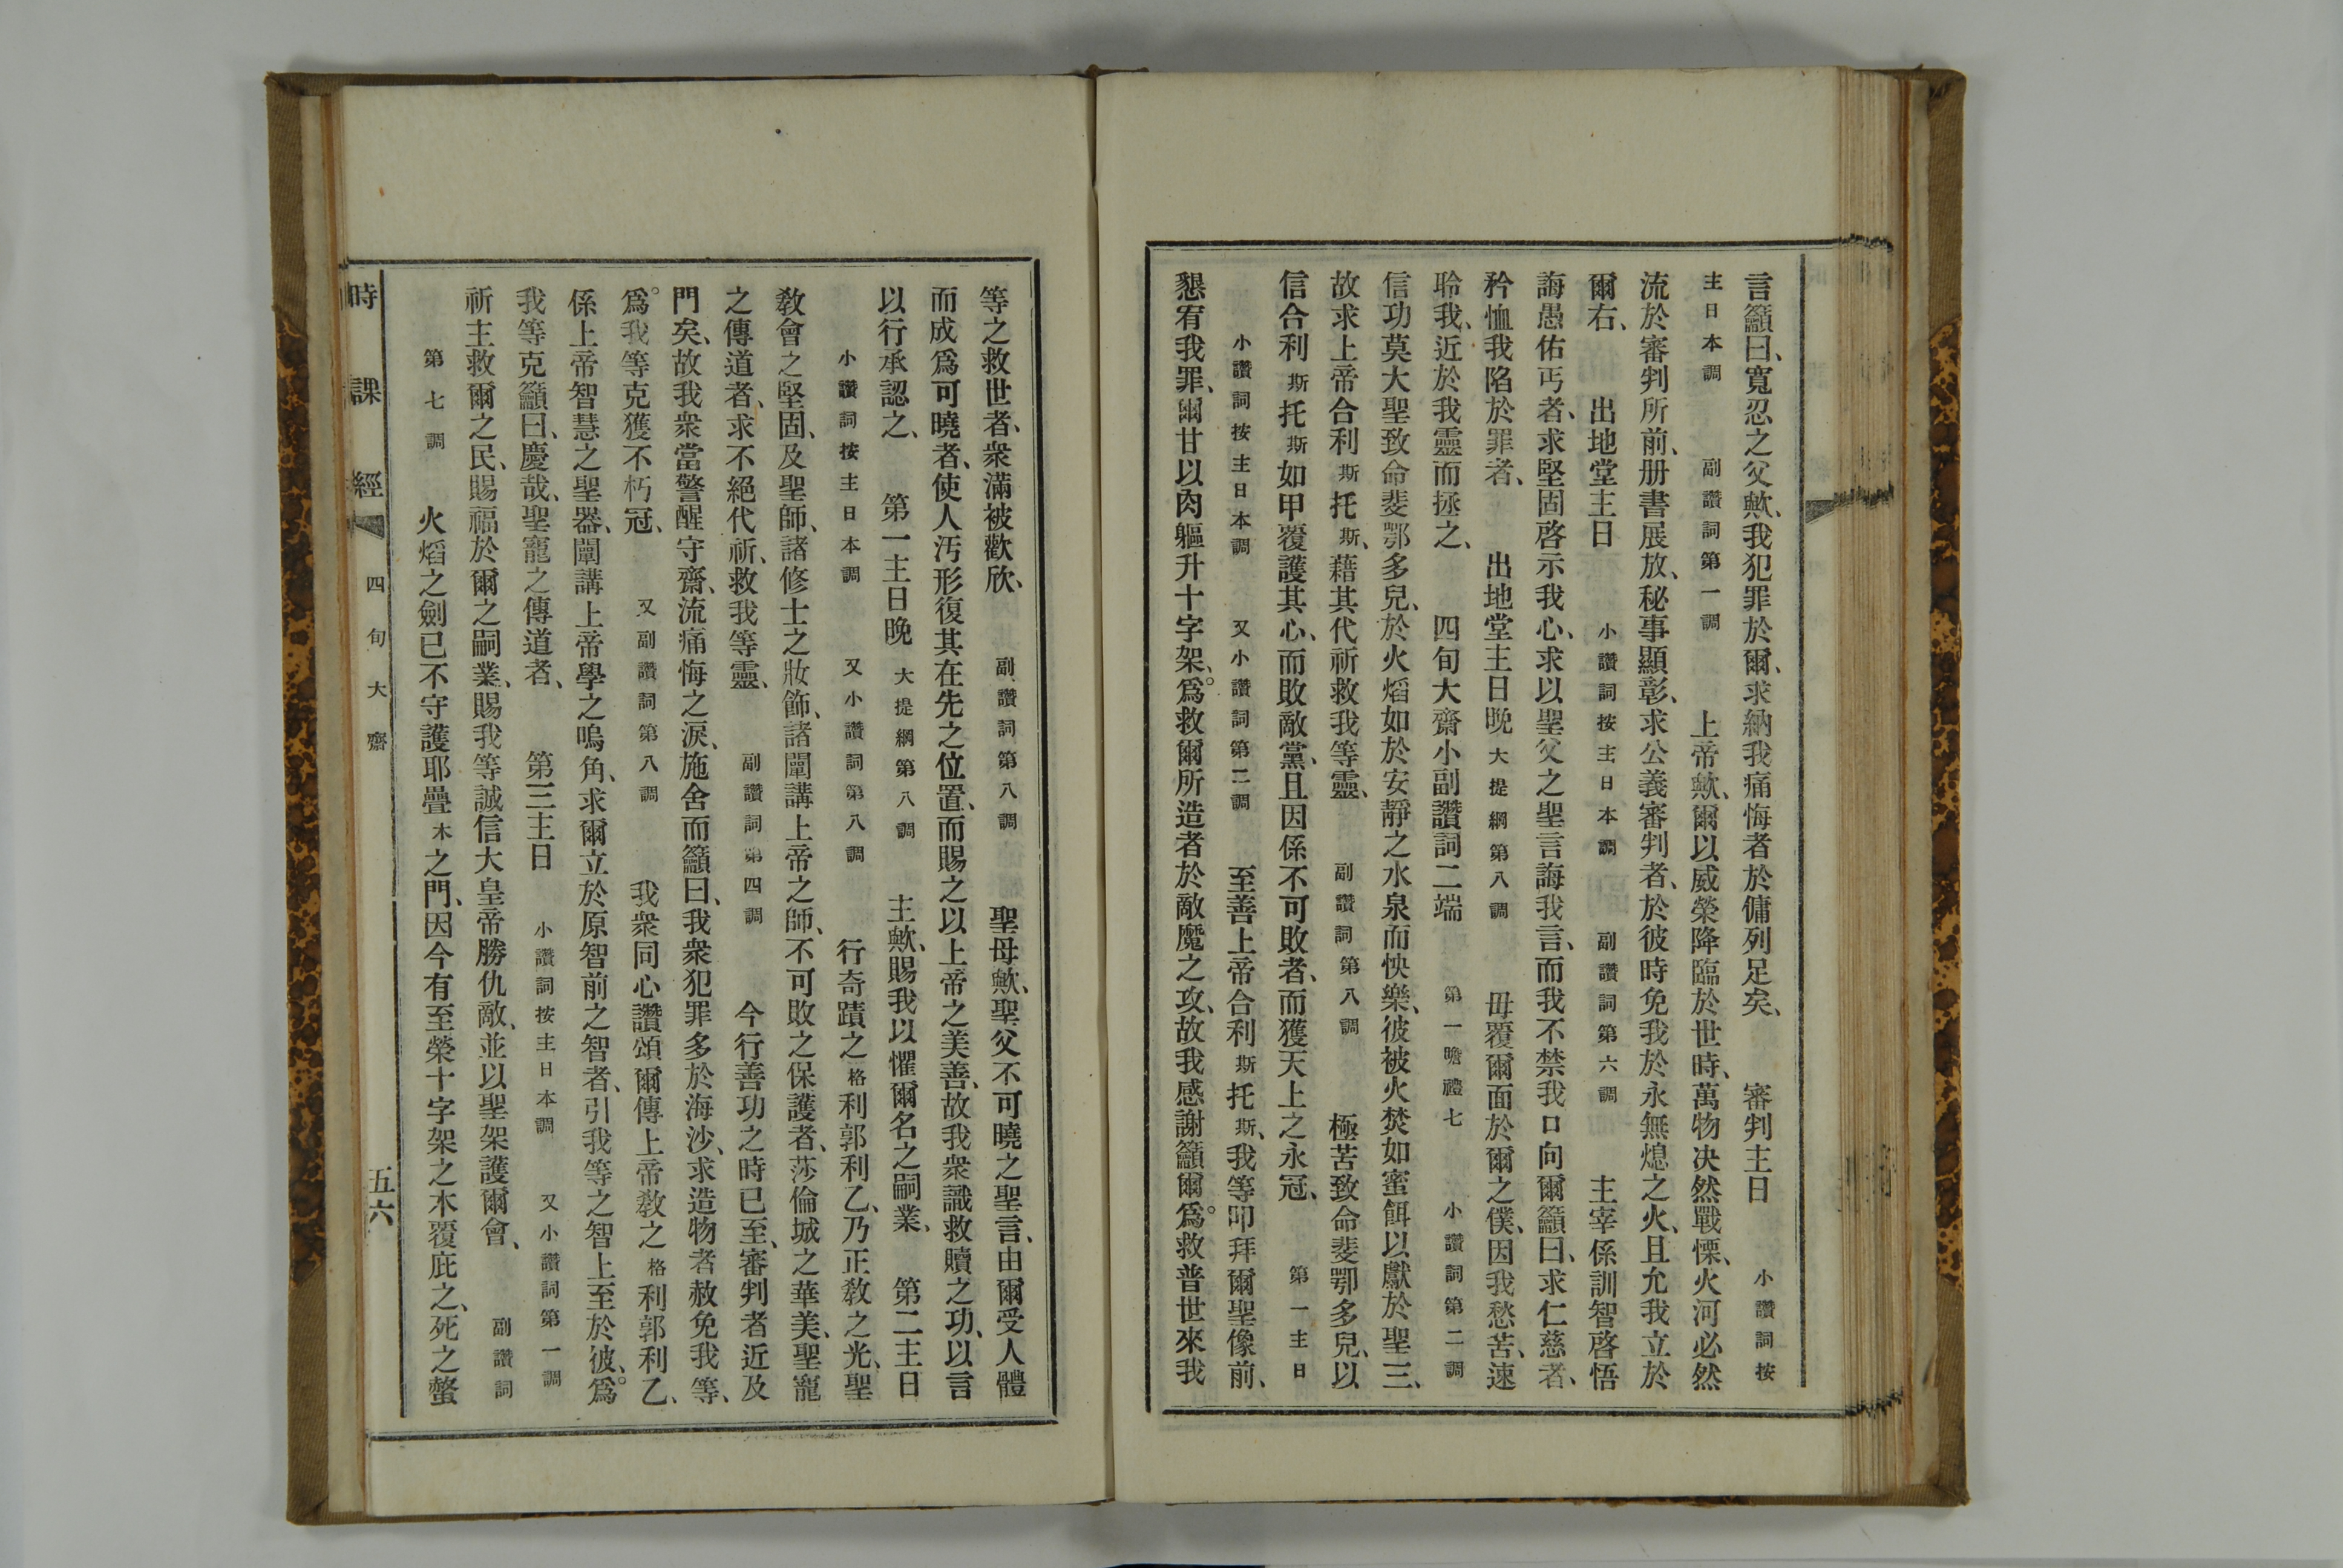 言籲曰、寬忍之父歟、我犯罪於爾、求納我痛悔者於傭列足矣、　審判主日　小讚詞按
主日本調　副讚詞第一調　上帝歟、爾以威榮降臨於世時、萬物決然戰慄、火河必然
流於審判所前、册書展放、秘事顯彰、求公義審判者、於彼時免我於永無熄之火、且允我立於
爾右、　出地堂主日　小讚詞按主日本調　副讚詞第六調　主宰係訓智啓悟
誨愚佑丐者、求堅固啓示我心、求以聖父之聖言誨我言、而我不禁我口向爾籲曰、求仁慈者、
矜恤我陷於罪者、　出地堂主日晚　大提綱第八調　毋覆爾面於爾之僕、因我愁苦、速
聆我、近於我靈而拯之、　四旬大齋小副讚詞二端　第一瞻禮七　小讚詞第二調
信功莫大聖致命斐鄂多兒、於火熖如於安靜之水泉而怏樂、彼被火焚如蜜餌以獻於聖三、
故求上帝合利斯托斯、藉其代祈救我等靈、　副讚詞第八調　極苦致命斐鄂多兒、以
信合利斯托斯如甲覆護其心、而敗敵黨、且因係不可敗者、而獲天上之永冠、　第一主日
小讚詞按主日本調　又小讚詞第二調　至善上帝合利斯托斯、我等叩拜爾聖像前、
懇宥我罪、爾甘以肉軀升十字架、爲救爾所造者於敵魔之攻、故我感謝籲爾。爲救普世來我
等之救世者、衆滿被歡欣、　副讚詞第八調　聖母歟、聖父不可曉之聖言、由爾受人體
而成爲可曉者、使人汚形復其在先之位置、而賜之以上帝之美善、故我衆識救贖之功、以言
以行承認之、　第一主日晚　大提綱第八調　主歟、賜我以懼爾名之嗣業、　第二主日
小讚詞按主日本調　又小讚詞第八調　行奇蹟之格利郭利乙、乃正敎之光、聖
敎會之堅固、及聖師、諸修士之妝飾、諸闡講上帝之師、不可敗之保護者、莎倫城之華美、聖寵
之傳道者、求不絕代祈、救我等靈、　副讚詞第四調　今行善功之時已至、審判者近及
門矣、故我衆當警醒守齋、流痛悔之淚、施舍而籲曰、我衆犯罪多於海沙、求造物者赦免我等、
爲。我等克獲不朽冠、　又副讚詞第八調　我衆同心讚頌爾傳上帝敎之格利郭利乙、
係上帝智慧之聖器、闡講上帝學之鳴角、求爾立於原智前之智者、引我等之智上至於彼、爲。
我等克籲曰、慶哉、聖寵之傳道者、　第三主日　小讚詞按主日本調　又小讚詞第一調
祈主救爾之民、賜福於爾之嗣業、賜我等誠信大皇帝勝仇敵、並以聖架護爾會、　副讚詞
第七調　火熖之劍已不守護耶疊木之門、因今有至榮十字架之木覆庇之、死之螫
時課經　四旬大齋　五六